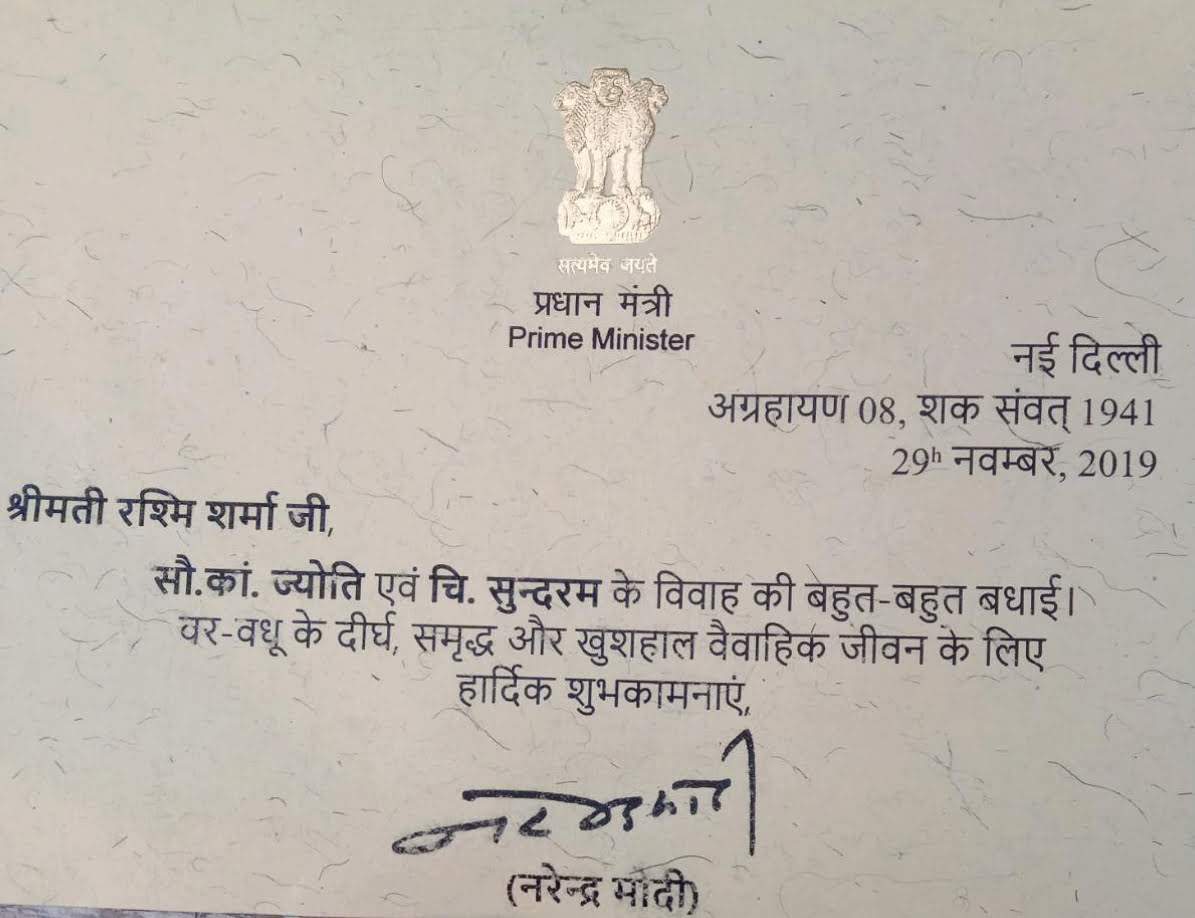 सत्यमेव जयते
प्रधान मंत्री
Prime Minister
नई दिल्ली
अग्रहायण 08, शक संवत् 1941
29ʰ नवम्बर, 2019
श्रीमती रश्मि शर्मा जी,
सौ.कां. ज्योति एवं चि. सुन्दरम के विवाह की बहुत-बहुत बधाई।
वर-वधू के दीर्घ, समृद्ध और खुशहाल वैवाहिक जीवन के लिए
हार्दिक शुभकामनाएं,
(नरेन्द्र मोदी)